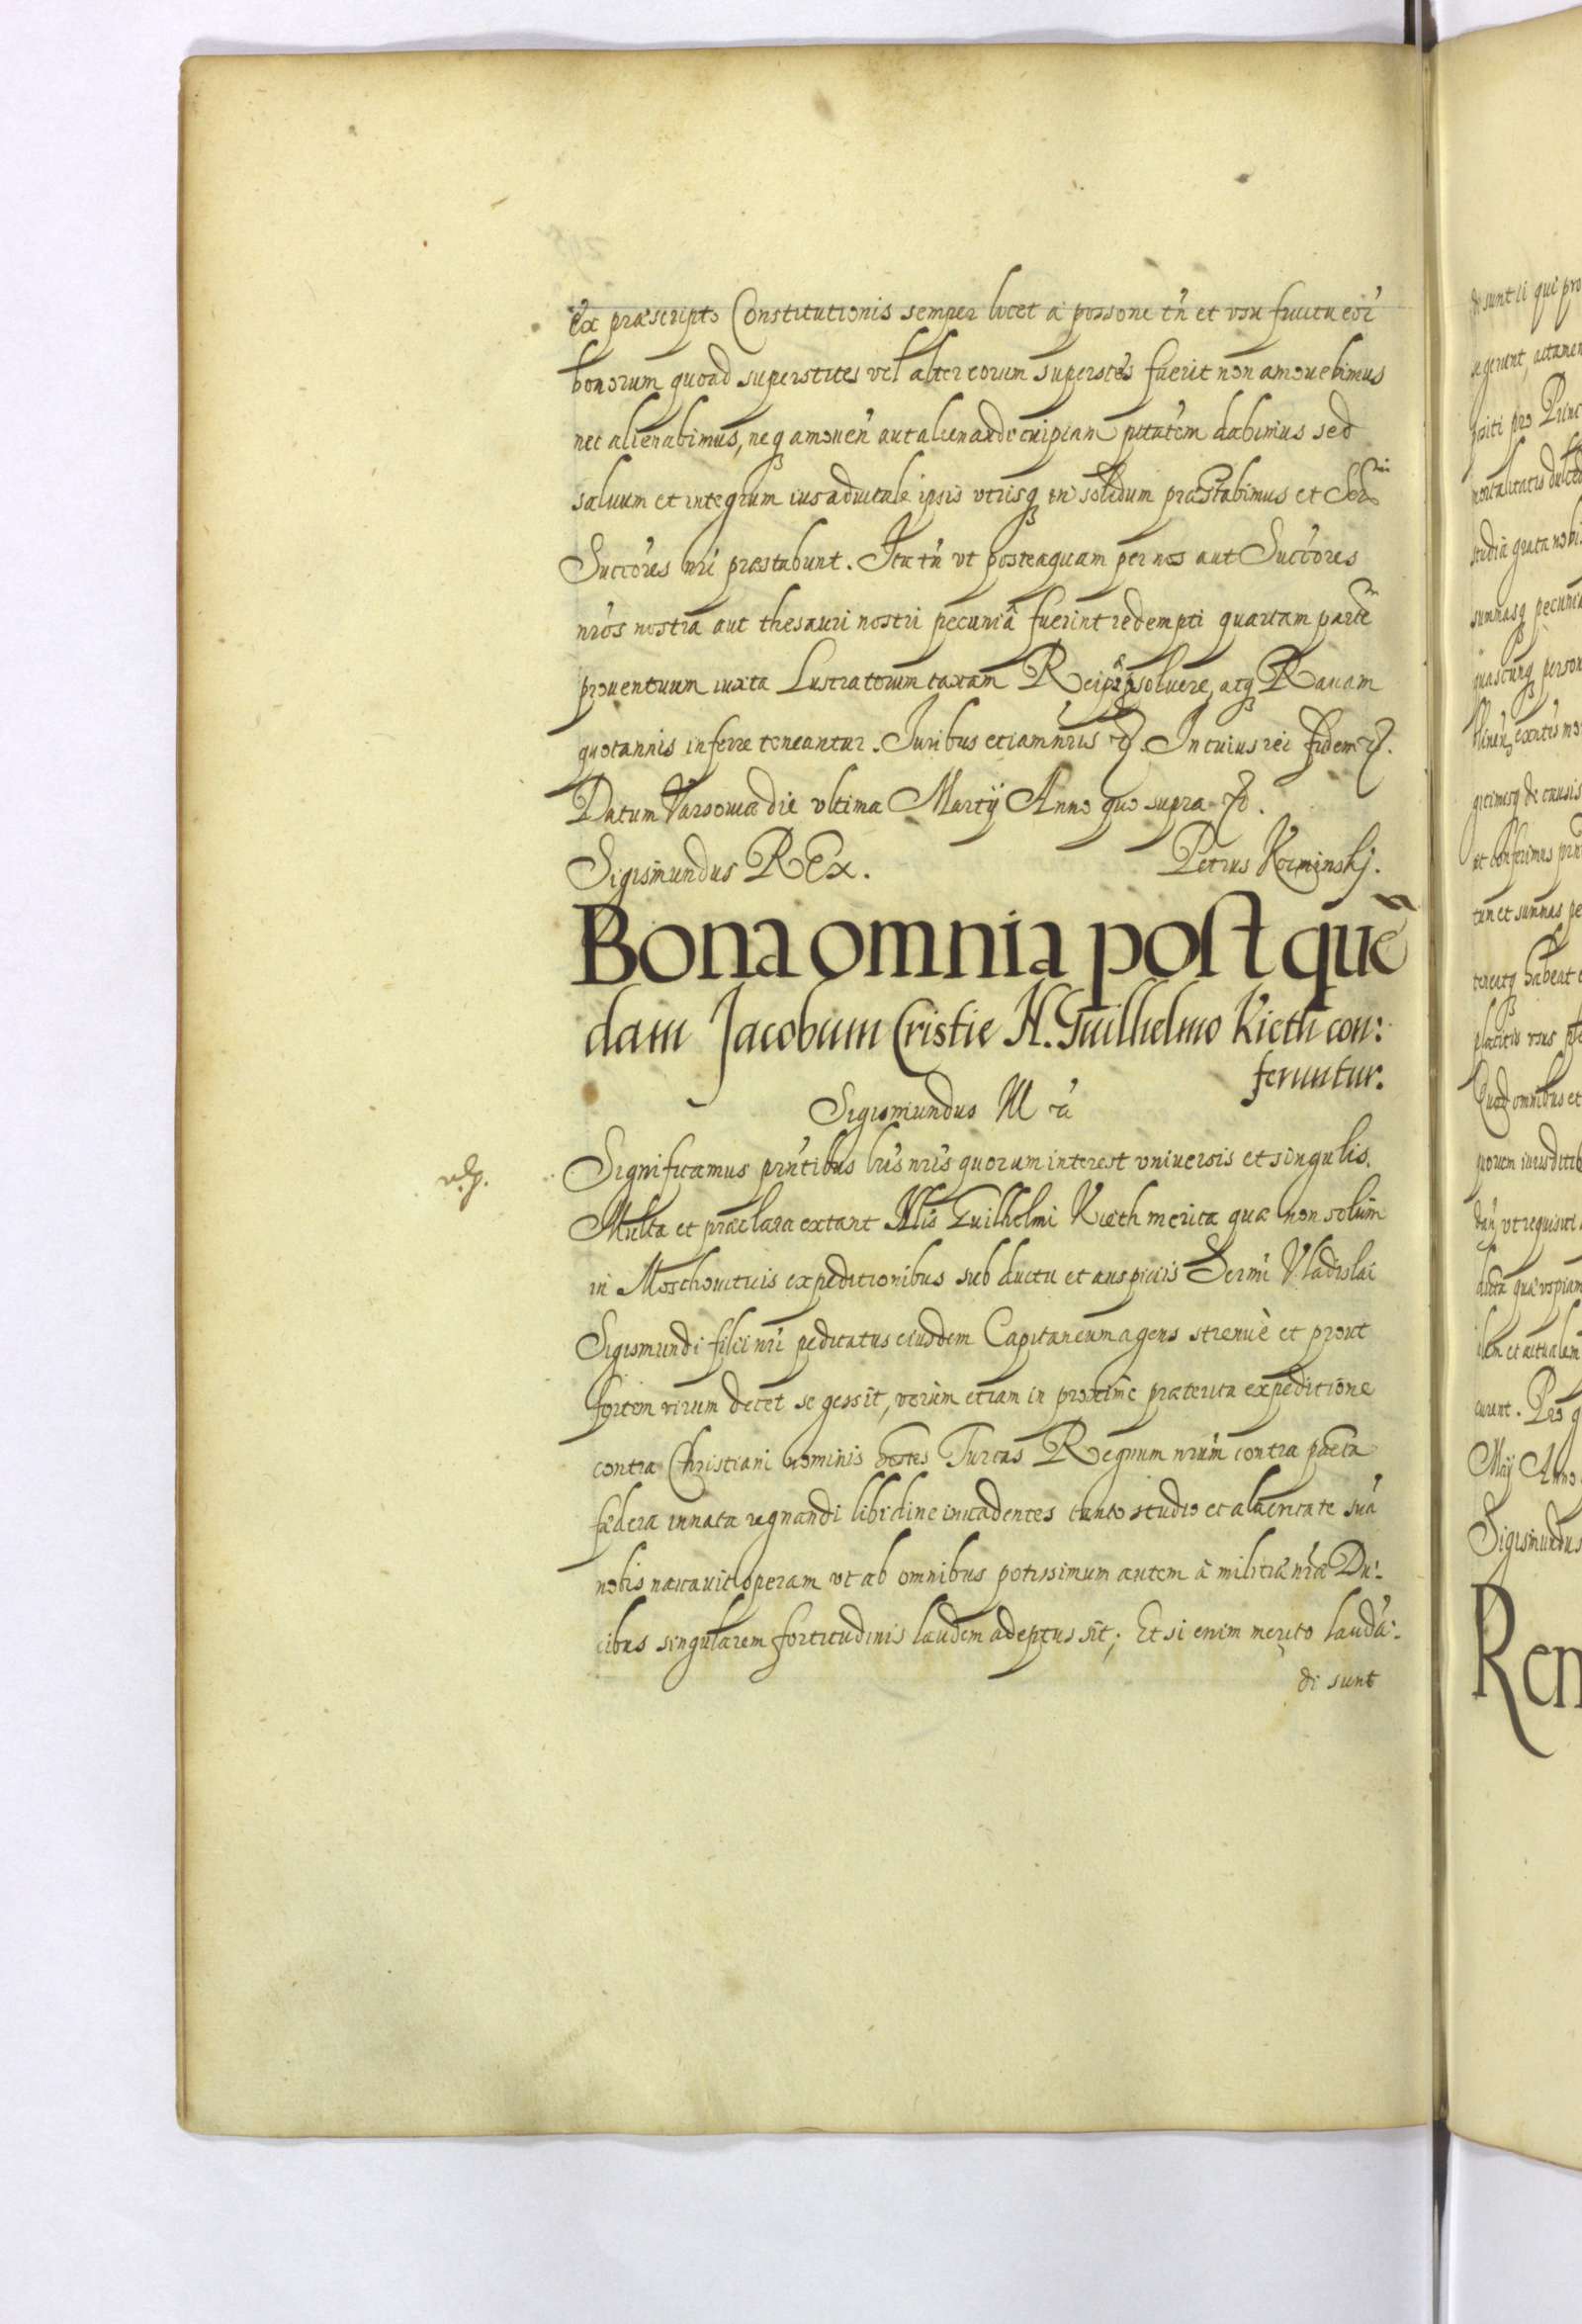 ex præscripto Constitutionis semper licet a possone tn̄ et vsu fructu eor̄
bonorum quoad superstites vel alter eorum superstes fuerit non amouebimus
nec alienabimus, neq̨ amouen̄ aut alienandi cuipiam ptātem dabimus sed
saluum et integrum ius aduitale ipsis vtrisq̨ in solidum præstabimus et Ser̄mi
Succōres nr̄i præstabunt. Ita tn̄ vt posteaquam per nos aut Succōres
nr̄os nostra aut thesauri nostri pecuniâ fuerint redempti quartam parte͂
prouentuum iuxta Lustratorum taxam Reip̄ soluere, atq̨ Rauam
quotannis inferre teneantur. Juribus etiam nr̄is &. In cuius rei fidem &.
Datum Varsouiæ die vltima Martij Anno quo supra &.
Sigismundus REx. Petrus Kominskj.
Bona omnia post que͂
dam Jacobum Cristie N. Guilhelmo Kieth con:
feruntur.
Sigismundus III &ā
Significamus pn̄tibus lr̄is nr̄is quorum interest vniuersis et singulis.
Multa et præclara extant Nlis Guilhelmi Kieth merita quæ non solùm
in Moschouiticis expeditionibus sub ductu et auspicijs Sermi Vladislai
Sigismundi filii nr̄i peditatus eiusdem Capitaneum agens strenuè et prout
fortem virum decet se gessit, verùm etiam in proximè præterita expeditione
contra Christiani nominis hostes Turcas Regnum nr̄um contra pacta
fædera innata regnandi libidine inuadentes tanto studio et alacritate suā
nobis nauauit operam vt ab omnibus potissimum autem à militiæ nr̄æ Du:
cibus singularem fortitudinis laudem adeptus sit; Et si enim merito laudā:
di sunt